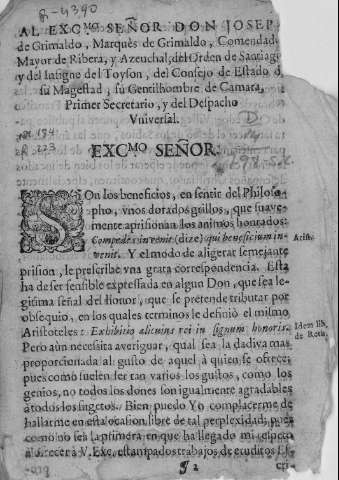 R-4390
AL EXC.MO SEÑOR DON JOSEP
de Grimaldo, Marquès de Grimaldo, Comendad
Mayor de Ribera, y Azeuchal, del Orden de Santiag
y del Insigne del Toyson, del Consejo de Estado d
su Magestad, su Gentilhombre de Camara,
Primer Secretario, y del Despacho
Vniversal.
EXC.MO SEÑOR.
SOn los beneficios, en sentir del Philoso-
pho, vnos dorados grillos, que suave-
mente aprisionan los animos honrados:
Compedes invenit (dize) qui beneficium in-
venit. Y el modo de aligerar semejante
Arist.
prision, le prescribe vna grata correspondencia. Esta
ha de ser sensible expressada en algun Don, que sea le-
gitima señal del Honor, que se pretende tributar por
obsequio, en los quales terminos le definiò el mismo
Aristoteles: Exhibitio alicuius rei in signum honoris.
Idem lib.
de Reth.
Pero aùn necesita averiguar, qual sea la dadiva mas
proporcionada al gusto de aquel à quien se ofrece;
pues como suelen ser tan varios los gustos, como los
genios, no todos los dones son igualmente agradables
à todos los sugetos. Bien puedo Yo complacerme de
hallarme en esta ocasion libre de tal perplexidad, pues
como no sea la primera en que ha llegado mi respeto
à ofrecer à V. Exc. estampados trabajos de eruditos
¶ 2
cri-